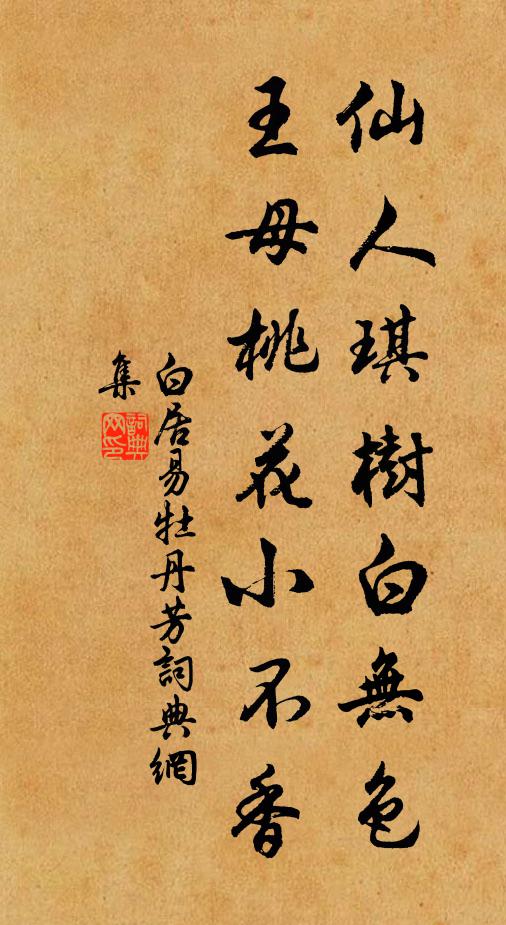 仙人琪樹白無色
王母桃花小不香
白居易牡丹芳詞典網
集
詞典
网印